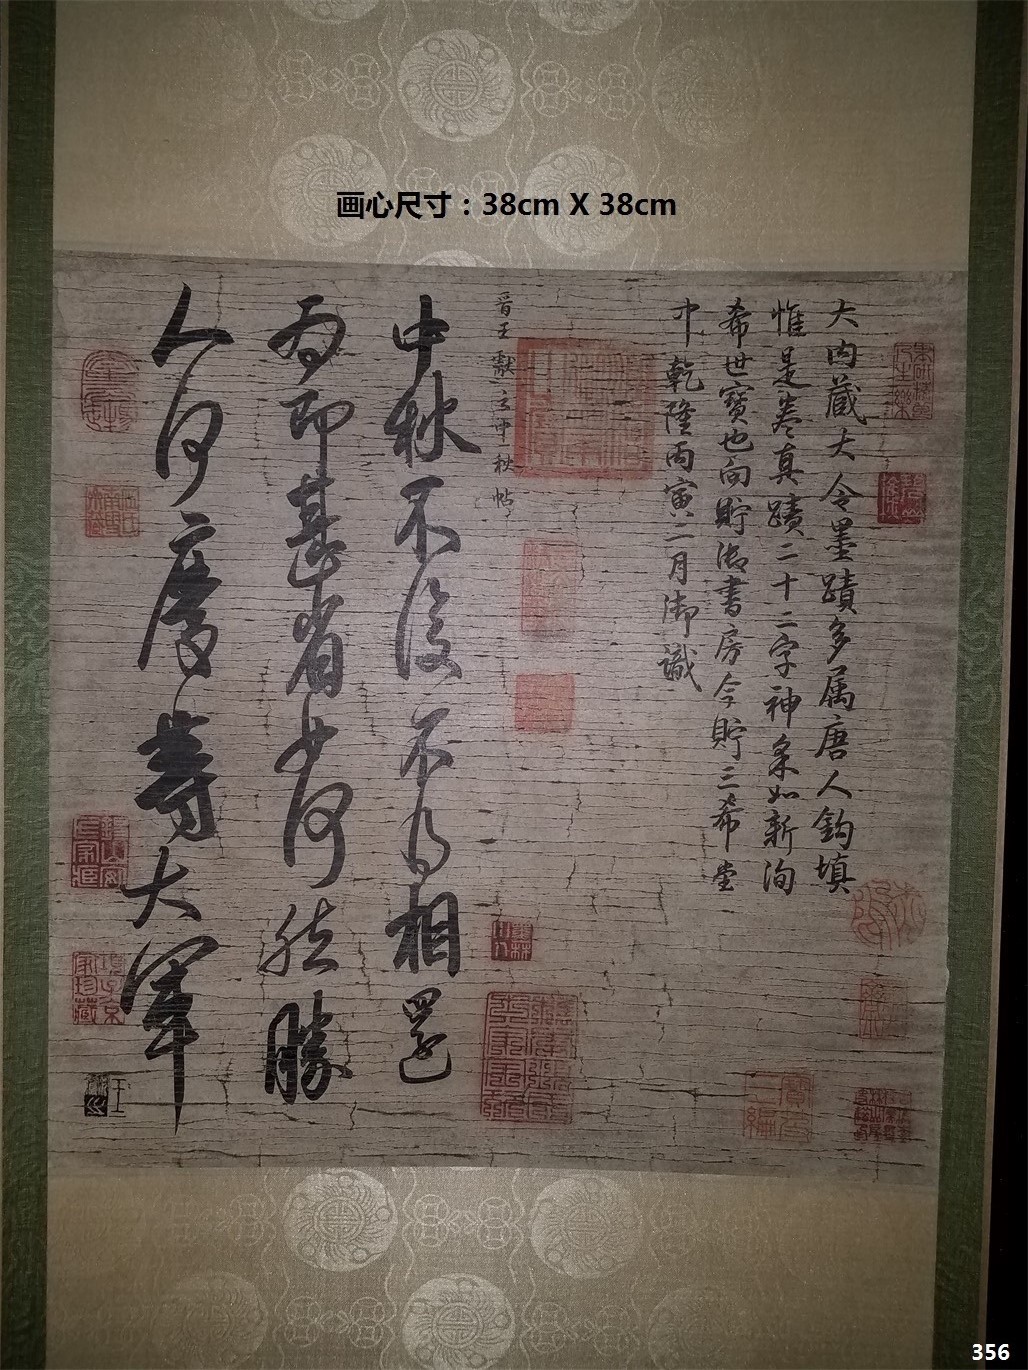 画心尺寸：38cm X 38cm
大内藏大令墨蹟多属唐人鈎填
惟是卷真蹟二十二字神采如新洵
希世寶也向貯御書房今貯三希堂
中乾隆丙寅二月御識
晋王獻之中秋帖
中秋不復不得相還
為即甚省如何然勝
人何慶等大軍
項子京家珍藏
356